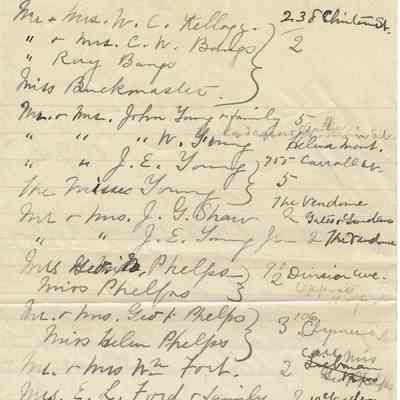 Mr + Mrs. W. C. Kellogg. 238 Clinton St.
" + Mrs. C. W. Bangs 2
" Ray Bangs
Miss Buckmaster.
Mr. + Mrs. John Young + family 5
" " " W. Young Helena Mont.
" " J. E. Young 755 Carroll St.
The Misses Young 5
Mr + Mrs. J. G. Shaw 2 The Vendome
" " J. E. Young Jr 2 The Vendome
Mrs Phelps Division Ave.
Miss Phelps 2
Mr. + Mrs. Geo Phelps 106
Miss Helen Phelps 3 Clymer
Mr. + Mrs Wm Fort. 2 care Mrs
Mrs. E. L. Ford + family 2